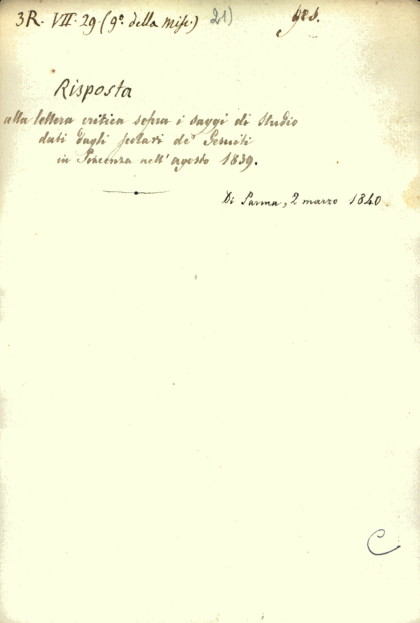 3R. VII. 29 (9º della misc.) 21)
Risposta
alla lettera critica sopra i saggi di studio
dati dagli scolari de' Gesuiti
in Piacenza nell' agosto 1839.
Di Parma, 2 marzo 1840.
C